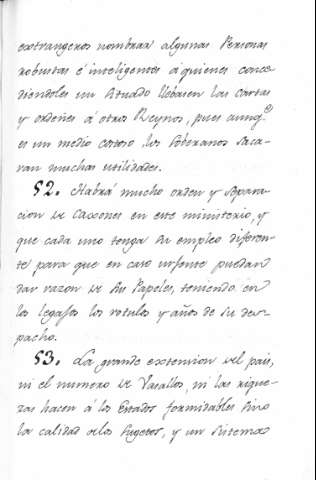 extrangeros nombrar algunas Personas
robustas é inteligentes á quienes conce
diendoles un Atuado llebasen las Cartas
y ordenes á otros Reynos, pues aunq.e
es un medio costoso, los Soberanos saca-
ran muchas utilidades.
52. Habrá mucho orden y separa-
cion de Caxones en este ministerio, y
que cada uno tenga su empleo diferen-
te para que en caso urgente puedan
dar razon de sus Papeles, teniendo en
los legajos los rotulos y años de su des-
pacho.
53. La grande extension del pais,
ni el numero de Vasallos, ni las rique-
zas hacen á los Estados formidables sino
la calidad de los Sugetos, y un sistema